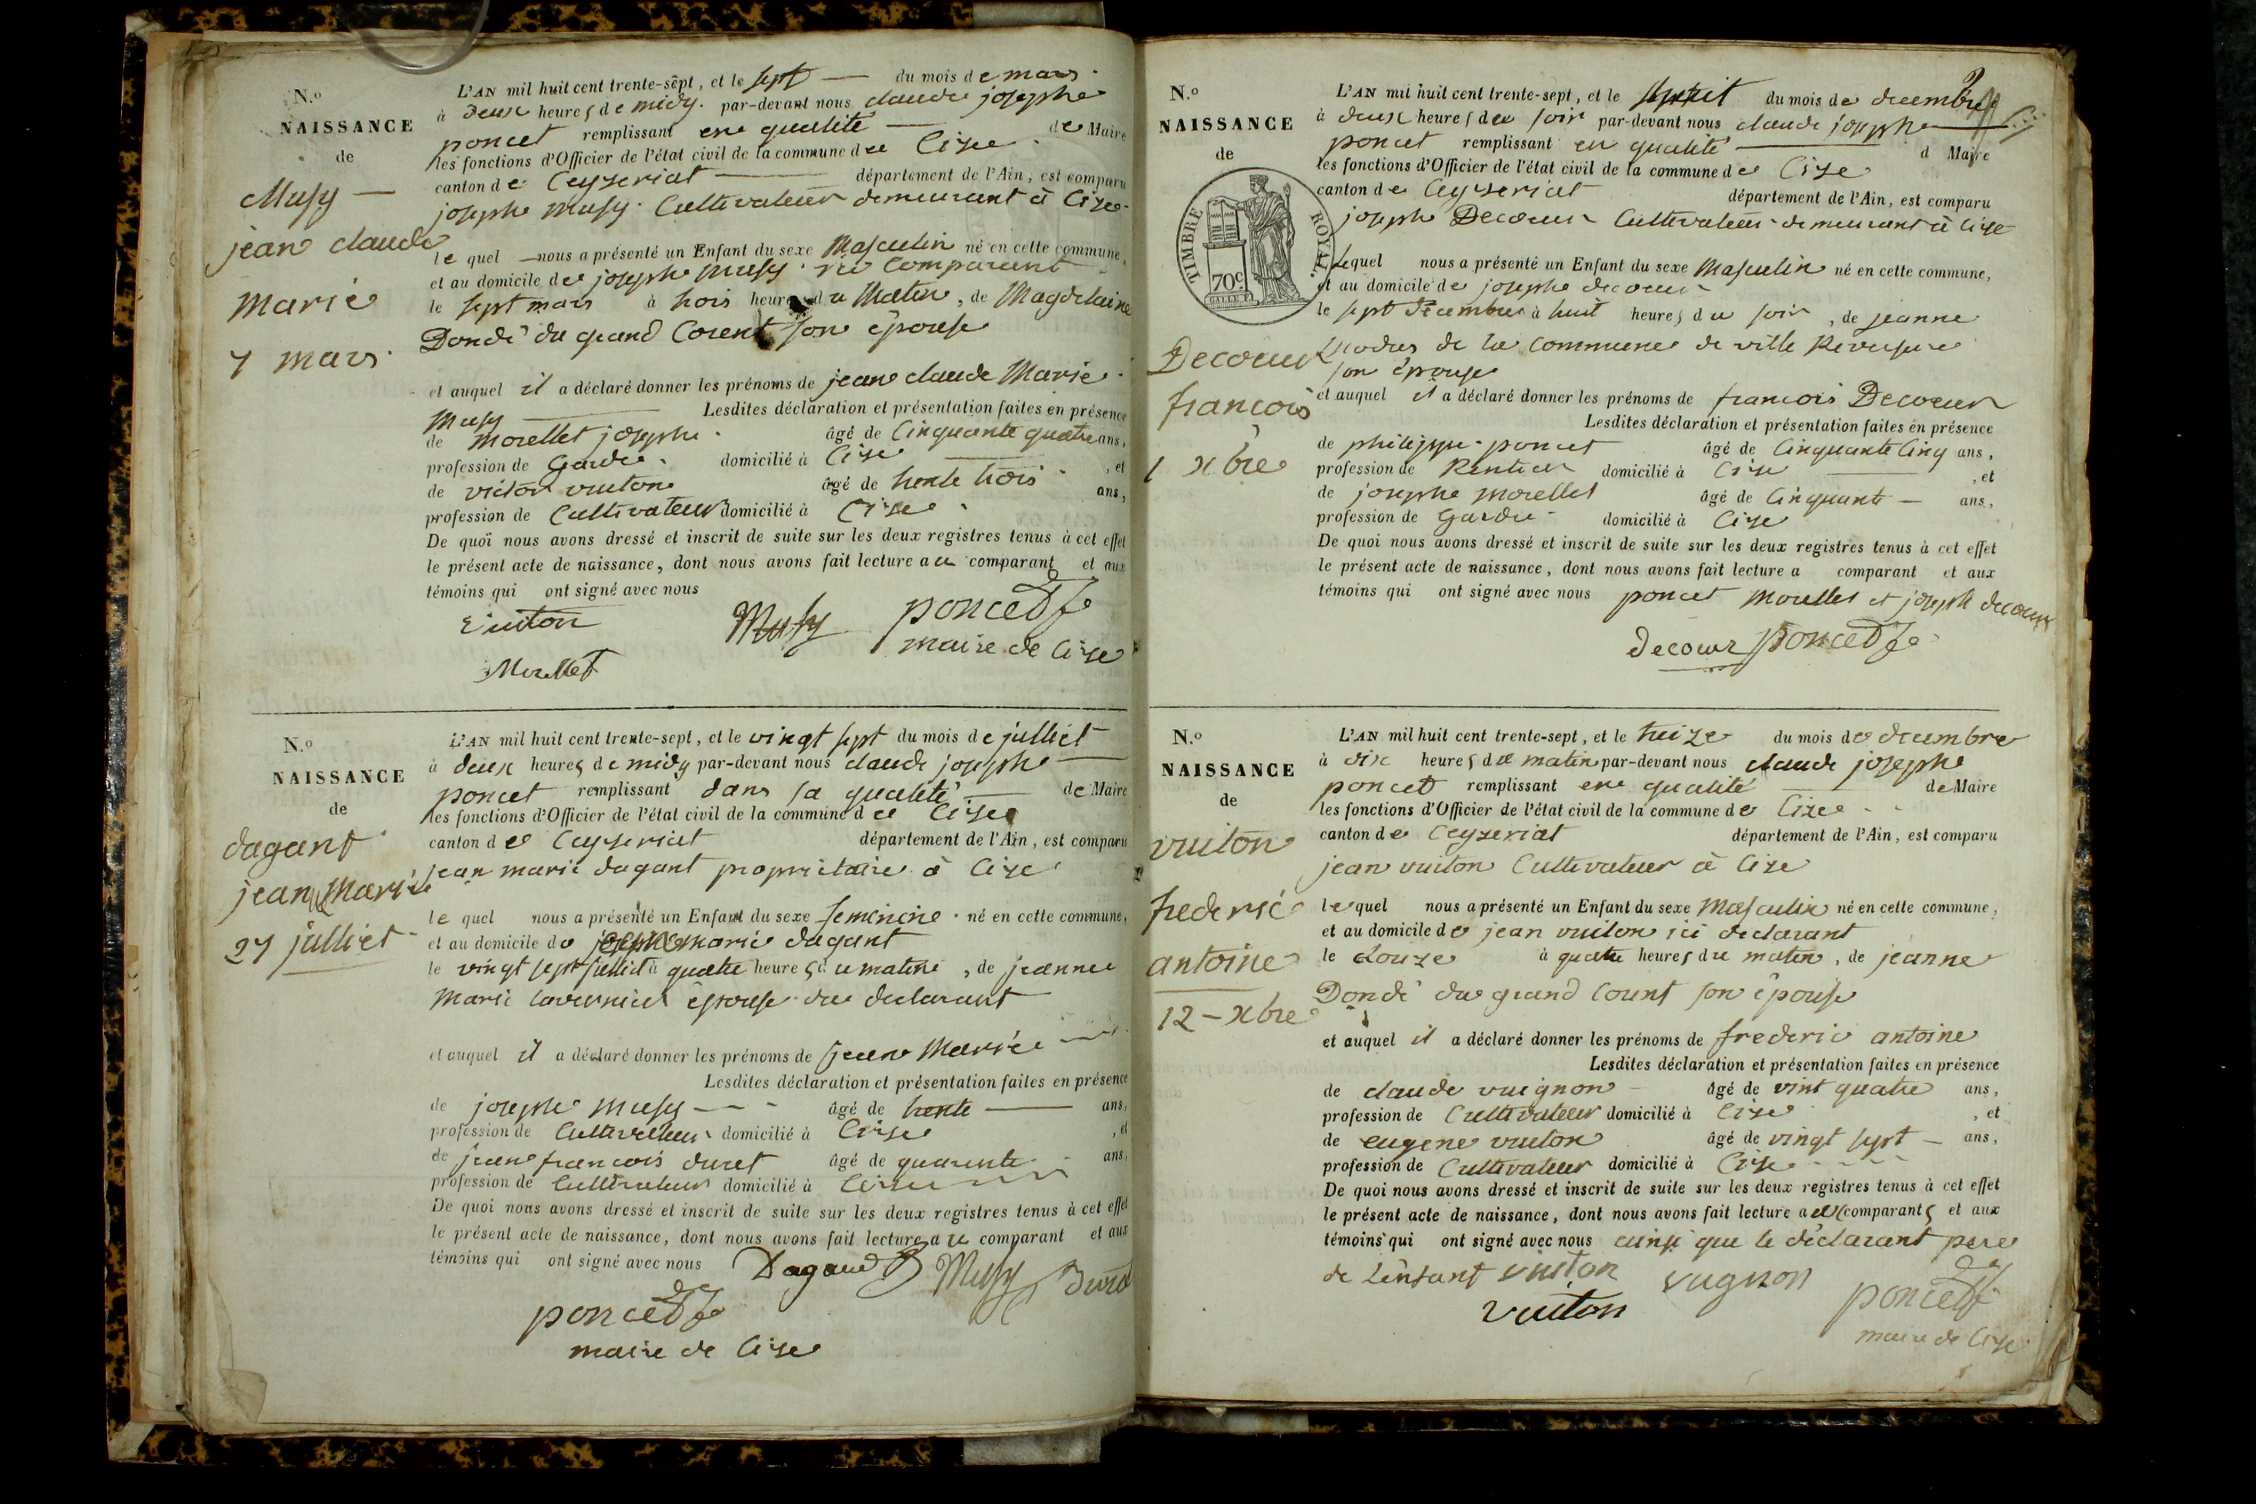 N.o
NAISSANCE
de
Musy
jean claude
Marie
7 mars
L'AN mil huit cent trente-sept, et le sept du mois de mars
à deux heures de midy par-devant nous claude josephe
poncet remplissant en qualité de Maire
les fonctions d'Officier de l'état civil de la commune de Cize
canton de Ceyzeriat département de l'Ain, est comparu
josephe Musy Cultivateur demeurant à Cize
le quel nous a présenté un Enfant du sexe Masculin né en cette commune,
et au domicile de josephe Musy comparant
le sept mars à trois heures du Matin, de Magdelaine
Dondé du grand Corent son épouse
et auquel il a déclaré donner les prénoms de jean claude Marie
Musy Lesdites déclaration et présentation faites en présence
de Morellet josephe âgé de Cinquante quatre ans,
profession de Garde domicilié à Cize, et
de victor vuiton âgé de trente trois ans,
profession de Cultivateur domicilié à Cize
De quoi nous avons dressé et inscrit de suite sur les deux registres tenus à cet effet
le présent acte de naissance, dont nous avons fait lecture au comparant et aux
témoins qui ont signé avec nous
vuiton Musy poncet
maire de Cize
Morellet
N.o
NAISSANCE
de
dagant
jean Marie
27 julliet
L'AN mil huit cent trente-sept, et le vingt sept du mois de julliet
à deux heures de midy par-devant nous claude josephe
poncet remplissant dans sa qualité de Maire
les fonctions d'Officier de l'état civil de la commune de Cize
canton de Ceyzeriat département de l'Ain, est comparu
jean marie dagant propriétaire à Cize
le quel nous a présenté un Enfant du sexe feminine né en cette commune,
et au domicile de marie dagant
le vingt sept julliet à quatre heures du matin, de jeanne
Marie épouse du declarant
et auquel il a déclaré donner les prénoms de jean Marie
Lesdites déclaration et présentation faites en présence
de josephe Musy âgé de trente ans,
profession de Cultivateur domicilié à Cize, et
de jean francois duret âgé de quarente ans,
profession de Cultivateur domicilié à Cize
De quoi nous avons dressé et inscrit de suite sur les deux registres tenus à cet effet
le présent acte de naissance, dont nous avons fait lecture au comparant et aux
témoins qui ont signé avec nous Dagand Musy Duret
poncet
maire de Cize
N.o
NAISSANCE
de
TIMBRE ROYAL.
70c
Decoeur
françois
1 xbre
L'AN mil huit cent trente-sept, et le huit du mois de decembre
à deux heures du soir par-devant nous claude josephe
poncet remplissant en qualité d Maire
les fonctions d'Officier de l'état civil de la commune de Cize
canton de Ceyzeriat département de l'Ain, est comparu
josephe Decoeur Cultivateur demeurant à Cize
Lequel nous a présenté un Enfant du sexe Masculin né en cette commune,
et au domicile de josephe decoeur
le sept decembre à huit heures du soir, de jeanne
de la commune de ville Reversure
son épouse
et auquel il a déclaré donner les prénoms de francois Decoeur
Lesdites déclaration et présentation faites en présence
de philippe poncet âgé de Cinquante Cinq ans,
profession de Rentier domicilié à Cize, et
de josephe Morellet âgé de Cinquante ans,
profession de Garde domicilié à Cize
De quoi nous avons dressé et inscrit de suite sur les deux registres tenus à cet effet
le présent acte de naissance, dont nous avons fait lecture a comparant et aux
témoins qui ont signé avec nous poncet Morellet et joseph decoeur
decoeur poncet
N.o
NAISSANCE
de
vuiton
frederic
antoine
12 - xbre
L'AN mil huit cent trente-sept, et le treize du mois de decembre
à dix heures du matin par-devant nous claude josephe
poncet remplissant en qualité de Maire
les fonctions d'Officier de l'état civil de la commune de Cize
canton de Ceyzeriat département de l'Ain, est comparu
jean vuiton Cultivateur à Cize
lequel nous a présenté un Enfant du sexe Masculin né en cette commune,
et au domicile de jean vuiton ici declarant
le douze à quatre heures du matin, de jeanne
Dondé du grand Corent son épouse
et auquel il a déclaré donner les prénoms de frederic antoine
Lesdites déclaration et présentation faites en présence
de claude vuignon âgé de vint quatre ans,
profession de Cultivateur domicilié à Cize, et
de eugene vuiton âgé de vingt sept ans,
profession de Cultivateur domicilié à Cize
De quoi nous avons dressé et inscrit de suite sur les deux registres tenus à cet effet
le présent acte de naissance, dont nous avons fait lecture aux comparants et aux
témoins qui ont signé avec nous ainsi que le déclarant pere
de Lenfant vuiton vugnon poncet
vuiton
maire de Cize